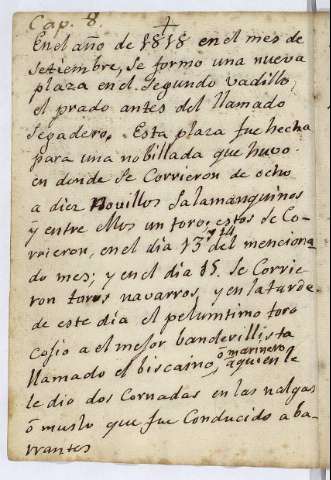 Cap. 8.
En el año de 1818 en el mes de
setiembre, se formo una nueva
plaza en el segundo vadillo,
el prado antes del llamado
segadero. Esta plaza fue hecha
para una nobillada que huvo.
en donde se corrieron de ocho
a diez Novillos Salamanquinos
y entre ellos un toro; estos se Co-
rrieron, en el dia 13 y 14 del menciona-
do mes; y en el dia 15. se Corrie-
ron toros navarros, y en la tarde
de este dia el penultimo toro
cojio a el mejor banderillista
llamado el biscaino, ó marinero a quien le
le dio dos Cornadas en las nalgas
ó muslo que fue Conducido a ba-
rrantes